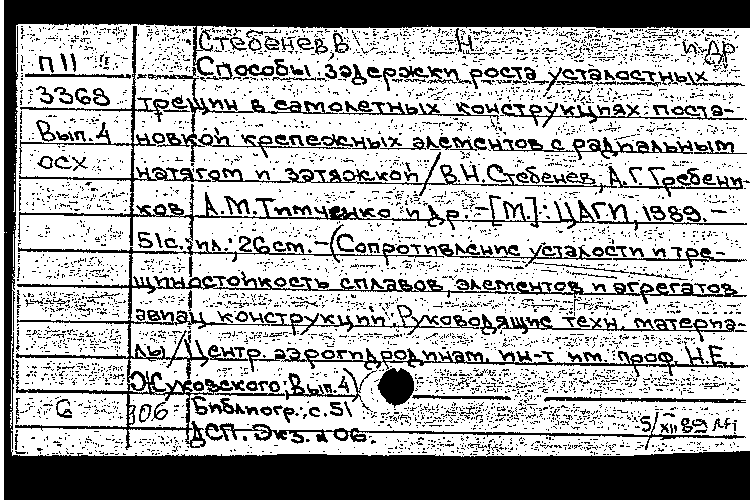 Стебенев, В Н и др
П 11 Способы задержки роста усталостных
3368 трещин в самолетных конструкциях поста-
Вып. 4 новкой крепежных элементов с радиальным
осх натягом и затяжкой / В.Н. Стебенев, А.Г. Гребени-
ков А.М. Тимченко и др. – [М.]: ЦАГИ, 1989. –
51с.: ил.; 26 см. – (Сопротивление усталости и тре-
щиностойкость сплавов, элементов и агрегатов
авиац конструкций: Руководящие техн. материа-
лы / Центр. аэрогидродинам. ин-т им. проф. Н.Е.
Жуковского; Вып. 4)
6 306 Библиогр.: с. 51
ДСП. Экз. 06. 5/XII 89